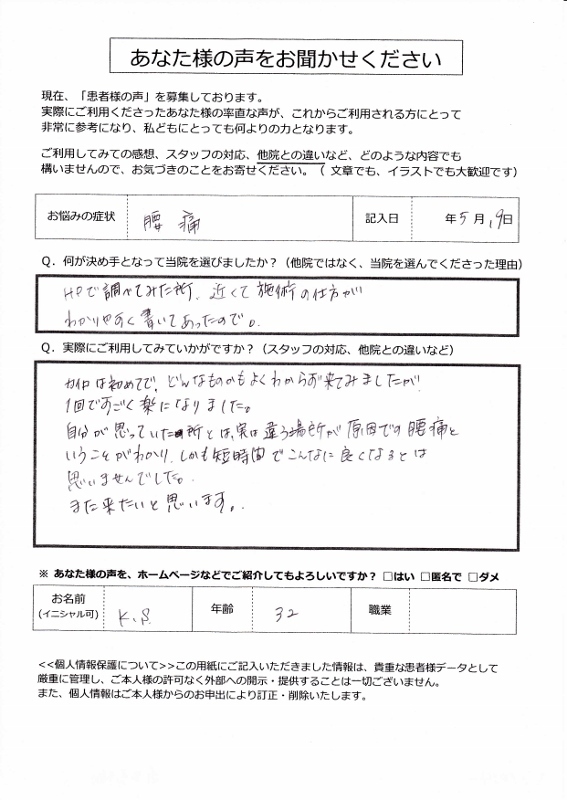 あなた様の声をお聞かせください
現在、「患者様の声」を募集しております。
実際にご利用くださったあなた様の率直な声が、これからご利用される方にとって
非常に参考になり、私どもにとっても何よりの力となります。
ご利用してみての感想、スタッフの対応、他院との違いなど、どのような内容でも
構いませんので、お気づきのことをお寄せください。（ 文章でも、イラストでも大歓迎です）
お悩みの症状 腰痛 記入日 年 5 月 19 日
Q．何が決め手となって当院を選びましたか？（他院ではなく、当院を選んでくださった理由）
HPで調べてみた所、近くて施術の仕方が
わかりやすく書いてあったので。
Q．実際にご利用してみていかがですか？（スタッフの対応、他院との違いなど）
カイロは初めてで、どんなものかもよくわからず来てみましたが、
1回ですごく楽になりました。
自分が思っていた所とは、実は違う場所が原因での腰痛と
いうことがわかり、しかも短時間でこんなに良くなるとは
思いませんでした。
また来たいと思います。
※ あなた様の声を、ホームページなどでご紹介してもよろしいですか？ □はい □匿名で □ダメ
お名前 K.S. 年齢 32 職業
(イニシャル可)
<<個人情報保護について>>この用紙にご記入いただきました情報は、貴重な患者様データとして
厳重に管理し、ご本人様の許可なく外部への開示・提供することは一切ございません。
また、個人情報はご本人様からのお申出により訂正・削除いたします。